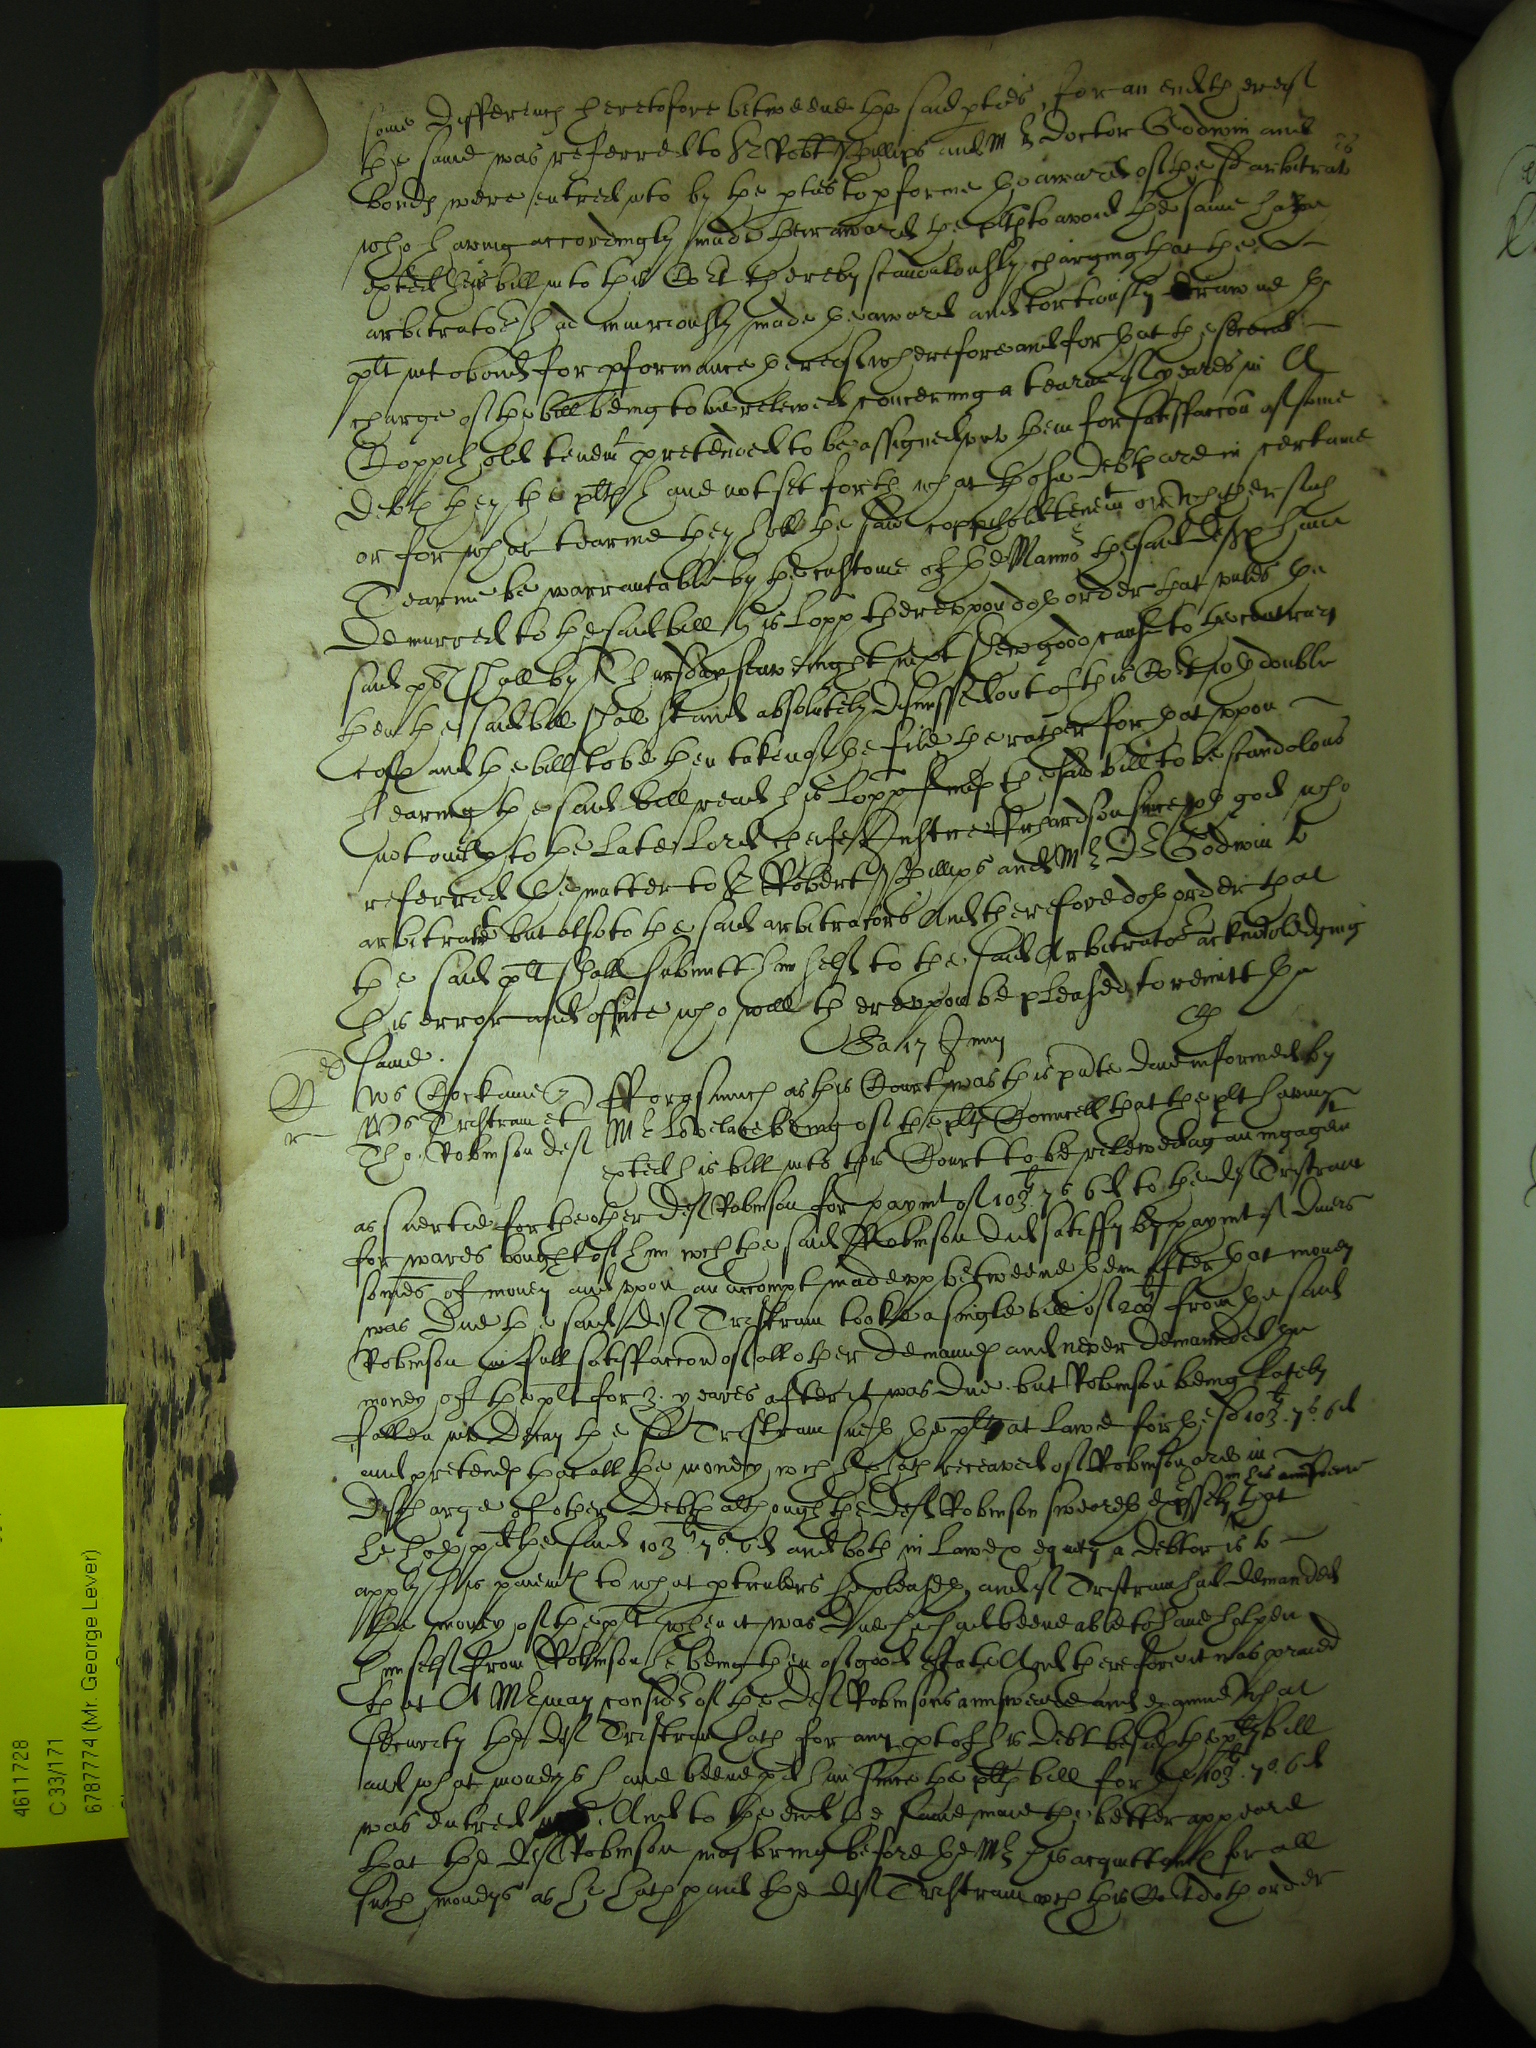 some difference heretofore betweene the said pties, for an end thereof
the same was referred to Sr Robt Phillips and Mr Doctor Godwin and
bonds were entred into by the pties to pforme the award of the sd arbitrators
who having accordingly made their award the plts to avoid the same have
exhited their bill into this Cort thereby scandalously charging that the
arbitrators had iniuriously made the award and tortiously drawne the
plt into bonds for pformance thereof, wherefore and for that the
charge of the bill being to be releived concerning a tearme of yeares in A
Coppyhold tenemt pretended to be assigned unto them for satisfaccon of some
debts they the plts have not set forth what those debts are in certaine
or for what tearme they hold the said coppyhold tenemt or whether such
Tearme be warrantable by the custome of the Mannor the said defts have
demurred to the said bill his Lopp thereupon doth order that unles the
said plt shall by Thursday seavenight next shew good cause to the contrary
then the said bill shall stand absolutely dismissed out of this Cort wth double
costs and the bill to be then taken of the file the rather for that upon
hearing the said bill read his Lopp finds the said bill to be scandolous
not only to the late Lord cheife Justice Richardson since wth god who
referred the matter to Sr Robert Phillips and Mr Dr Godwin to
arbitrate but also to the said arbitrators And therefore doth order that
the said plt shall submitt himself to the said Arbitrators acknowledging
his error and offence who will thereupon be pleased to remitt the
same.
Sa 17 Juny
Wo Cockaine
Wo Tristram et
Tho: Robinson defts
Fforasmuch as this Court was this pnte daie informed by
Mr Lovelace being of the plts Councell that the plt having
exhited his bill into this Court to be releived agt an ingagemt
as suertie for the other deft Robinson for paymt of 103li 7s 6d to the deft Tristram
for wares bought of him wch the said Robinson did satisfy by paymt of divers
somes of money and upon an accompt made upp betweene them after that money
was due the said deft Tristram tooke a single bill of 200li from the said
Robinson in full satisfaccon of all other demaunds and never demannded the
money of the plt for 3. yeares after it was due. but Robinson being lately
fallen into decay the sd Tristram sueth the plt at Lawe for the sd 103li. 7s. 6d
and pretends that all the money wch he hath receaved of Robinson are in
discharge of other debts although the deft Robinson sweareth expressely in his answeare that
he hath pd the said 103li 7s. 6d and both in Lawe & equity a debtor is to
apply his paiemts to what pticulers he pleaseth, and if Tristram had demanded
the money of the plt when it was due he had beene able to have holpen
himself from Robinson he being then of good estate And therefore it was praied
that A Mr may consider of the deft Robinsons annsweare and examine what
security the deft Tristram hath for any pt of his debt besides the plts bill
and what moneys have beene pd him since the plts bill for the 103li. 7s. 6d
was entred And to the end the same maie the better appeare
that the deft Robinson may bring before the Mr his acquittances for all
such moneys as he hath paid the deft Tristram wch this Cort doth order
4611728
C 33/171
6787774 (Mr. George Lever)